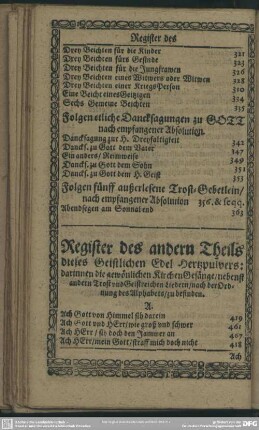 Register des
Drey Beichten für die Kinder 321
Drey Beichten fürs Gesinde 323
Drey Beichten für die Jungfrawen 326
Drey Beichten eines Witwers oder Witwen 328
Drey Beichten einer KriegsPerson 310
Eine Beicht eines Geitzigen 334
Sechs Gemeine Beichten 335
Folgen etliche Dancksagungen zu GOTT
nach empfangener Absolution.
Dancksagung zur H. Dreyfaltigkeit 342
Dancks. zu Gott dem Vater 347
Ein anders / Reimweise 349
Dancks. zu Gott dem Sohn 351
Dancks. zu Gott dem H. Geist 353
Folgen fünff außerlesene Trost-Gebetlein /
nach empfangener Absolution 356. & seqq.
Abendsegen am Sonnabend 363
Register des andern Theils
dieses Geistlichen Edel Hertzpulvers:
darinnen die gewönlichen Kirchen Gesänge / nebenst
andern Trost und Geistreichen Liedern / nach der Ord-
nung des Alphabets / zu befinden.
A.
Ach Gott von Himmel sih darein 419
Ach Gott und HErr / wie groß und schwer 461
Ach HErr / sih doch den Jammer an 409
Ach HErr / mein Gott / straff mich doch nicht 418
Ach